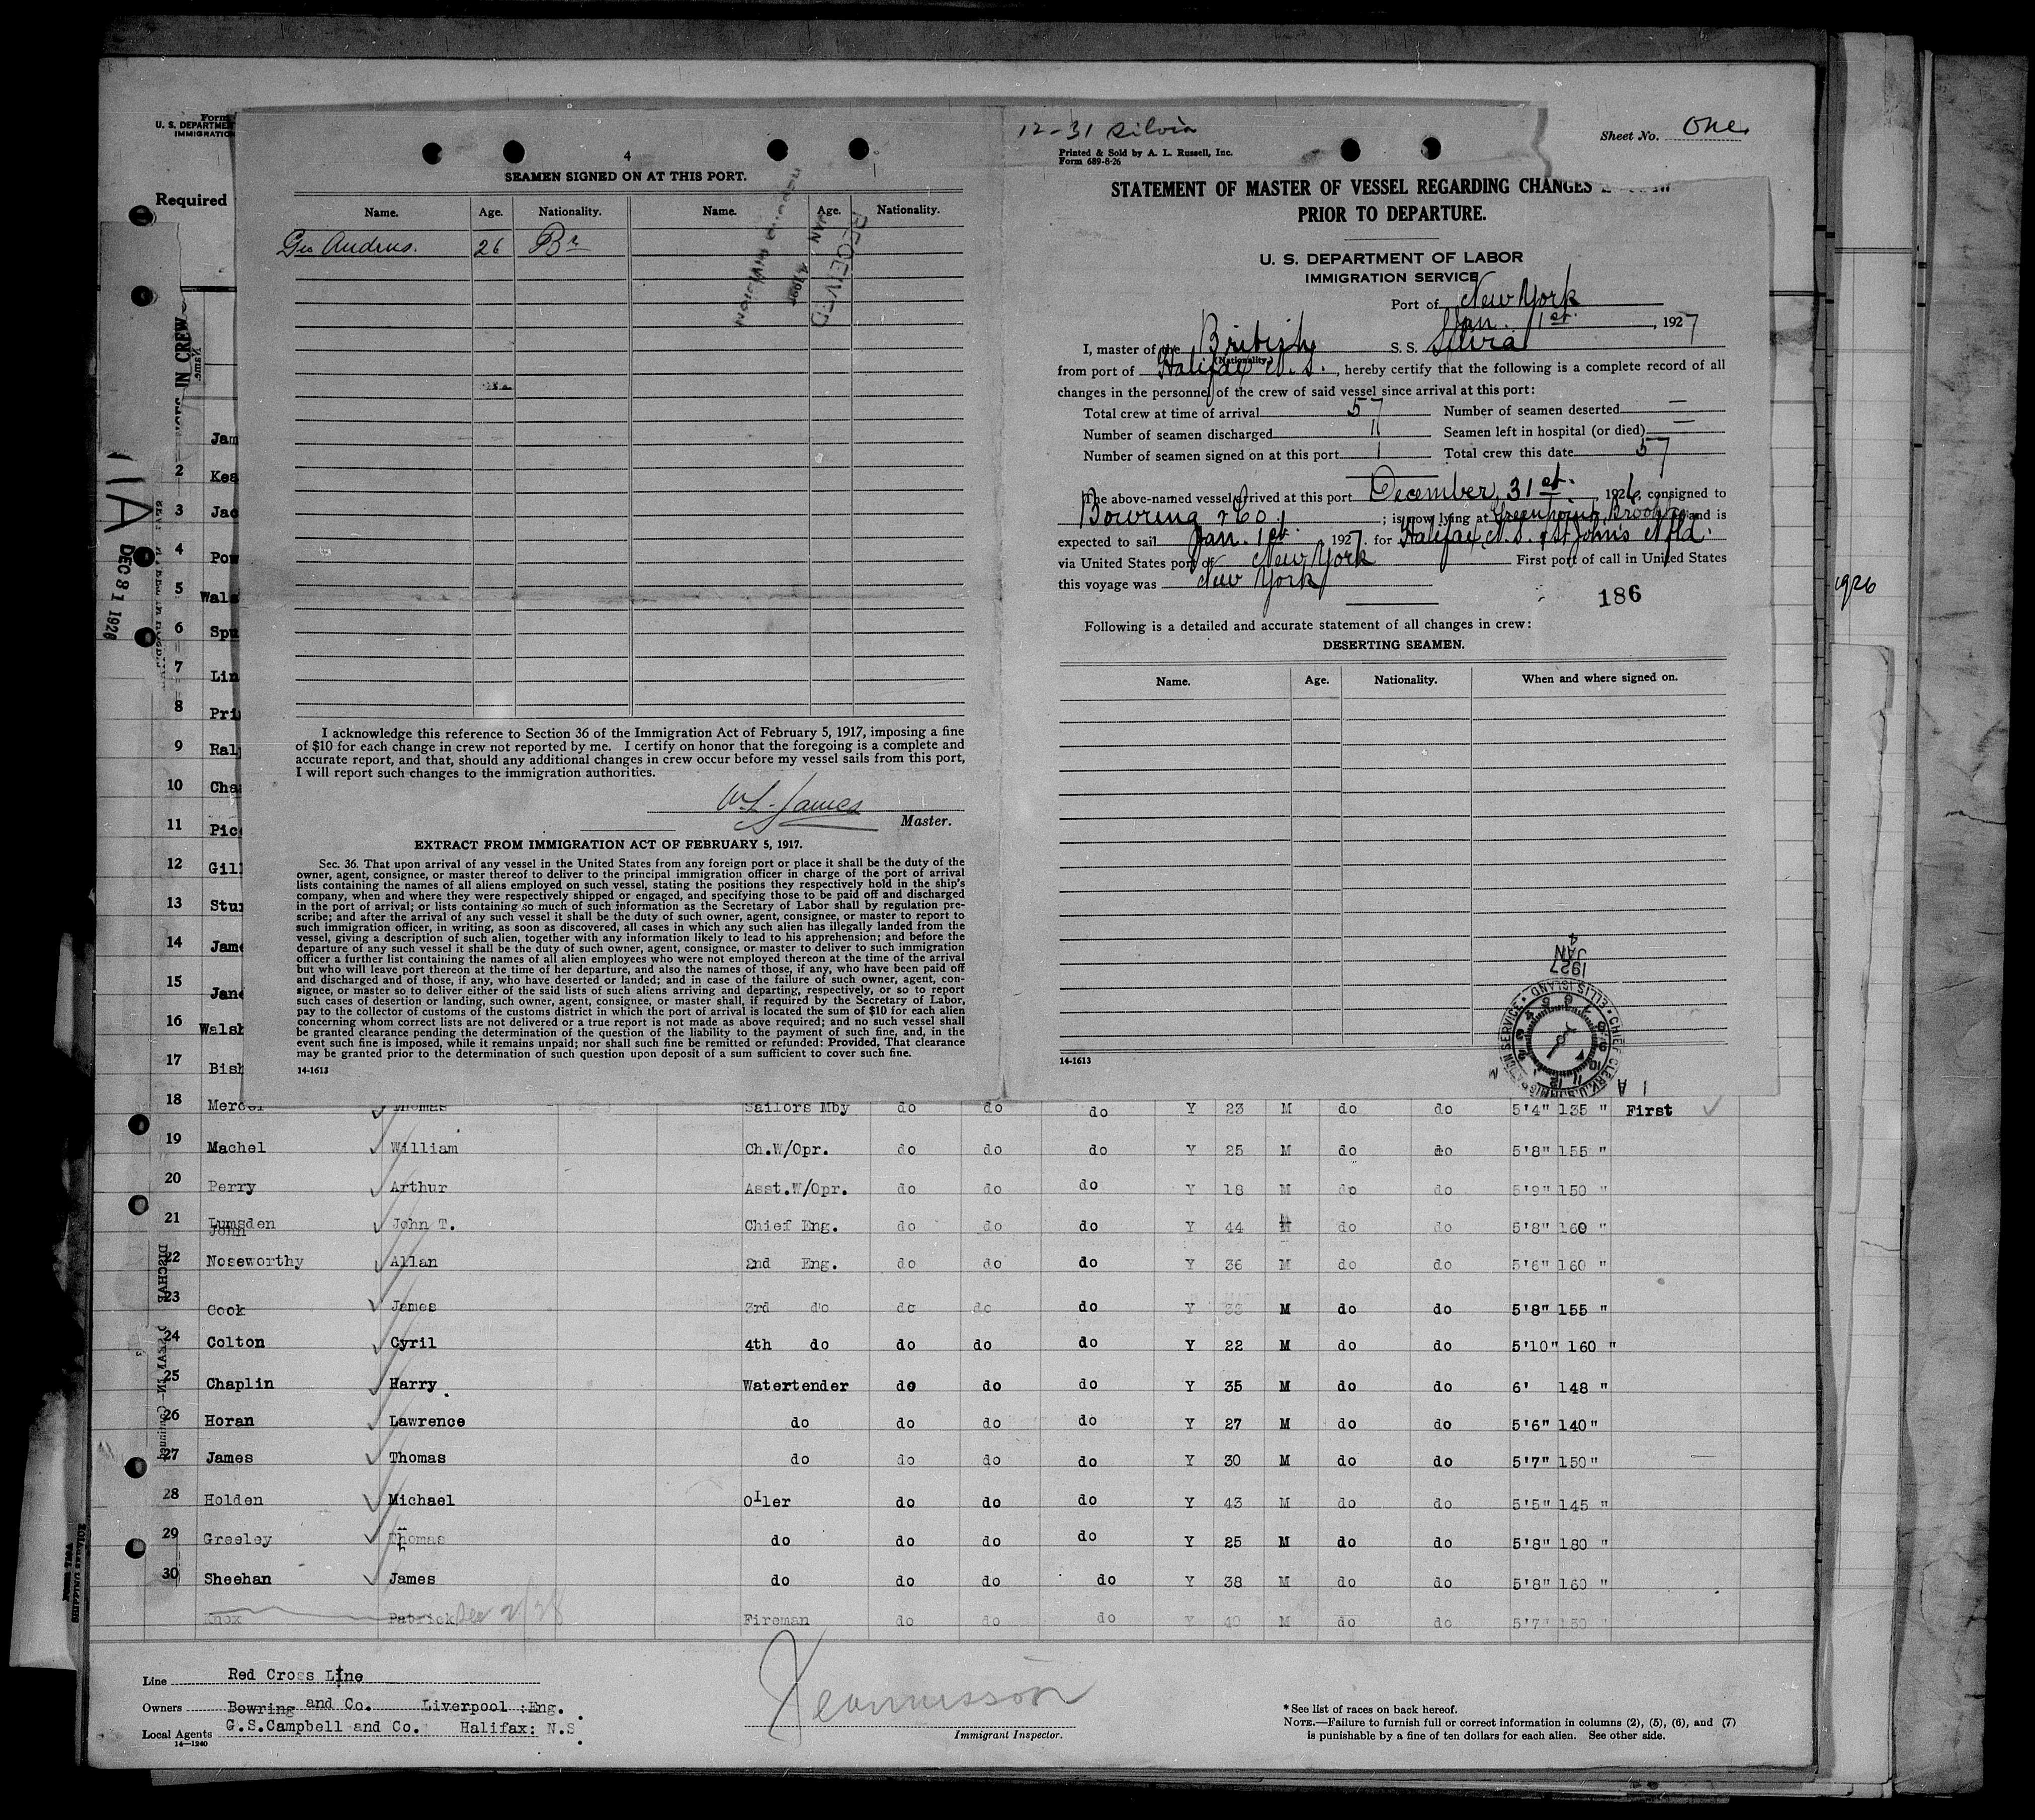 12-31 Silvia
Sheet No. One
Form
U. S. DEPARTMENT
IMMIGRATION
Required
4
SEAMEN SIGNED ON AT THIS PORT.
Name. Age. Nationality. Name. Age. Nationality.
Geo Andrus. 26 Br
RECEIVED
JAN 4 1927
DIVISION
I acknowledge this reference to Section 36 of the Immigration Act of February 5, 1917, imposing a fine
of $10 for each change in crew not reported by me. I certify on honor that the foregoing is a complete and
accurate report, and that, should any additional changes in crew occur before my vessel sails from this port,
I will report such changes to the immigration authorities.
W.L. James
Master.
EXTRACT FROM IMMIGRATION ACT OF FEBRUARY 5, 1917.
Sec. 36. That upon arrival of any vessel in the United States from any foreign port or place it shall be the duty of the
owner, agent, consignee, or master thereof to deliver to the principal immigration officer in charge of the port of arrival
lists containing the names of all aliens employed on such vessel, stating the positions they respectively hold in the ship's
company, when and where they were respectively shipped or engaged, and specifying those to be paid off and discharged
in the port of arrival; or lists containing so much of such information as the Secretary of Labor shall by regulation pre-
scribe; and after the arrival of any such vessel it shall be the duty of such owner, agent, consignee, or master to report to
such immigration officer, in writing, as soon as discovered, all cases in which any such alien has illegally landed from the
vessel, giving a description of such alien, together with any information likely to lead to his apprehension; and before the
departure of any such vessel it shall be the duty of such owner, agent, consignee, or master to deliver to such immigration
officer a further list containing the names of all alien employees who were not employed thereon at the time of the arrival
but who will leave port thereon at the time of her departure, and also the names of those, if any, who have been paid off
and discharged and of those, if any, who have deserted or landed; and in case of the failure of such owner, agent, con-
signee, or master so to deliver either of the said lists of such aliens arriving and departing, respectively, or so to report
such cases of desertion or landing, such owner, agent, consignee, or master shall, if required by the Secretary of Labor,
pay to the collector of customs of the customs district in which the port of arrival is located the sum of $10 for each alien
concerning whom correct lists are not delivered or a true report is not made as above required; and no such vessel shall
be granted clearance pending the determination of the question of the liability to the payment of such fine, and, in the
event such fine is imposed, while it remains unpaid; nor shall such fine be remitted or refunded: Provided, That clearance
may be granted prior to the determination of such question upon deposit of a sum sufficient to cover such fine.
14-1613
Printed & Sold by A. L. Russell, Inc.
Form 689-8-26
STATEMENT OF MASTER OF VESSEL REGARDING CHANGES
PRIOR TO DEPARTURE.
U. S. DEPARTMENT OF LABOR
IMMIGRATION SERVICE
Port of New York
Jan. 1st. , 1927
I, master of the British S. S. Silvia
(Nationality.)
from port of Halifax N. S. , hereby certify that the following is a complete record of all
changes in the personnel of the crew of said vessel since arrival at this port:
Total crew at time of arrival 57 Number of seamen deserted —
Number of seamen discharged 11 Seamen left in hospital (or died) —
Number of seamen signed on at this port 1 Total crew this date 57
The above-named vessel arrived at this port December 31st. , 1926, consigned to
Bowring & Co. ; is now lying at Greenpoint, Brooklyn and is
expected to sail Jan. 1st , 1927. for Halifax, N. S. & St. John's Nfld.
via United States port of New York First port of call in United States
this voyage was New York
186
Following is a detailed and accurate statement of all changes in crew:
DESERTING SEAMEN.
Name. Age. Nationality. When and where signed on.
JAN 4 1927
CHIEF CLERK, U.S. IMMIGRATION SERVICE • ELLIS ISLAND •
14-1613
1926
IN CREW
Name
11A
DEC 31 1926
Jam
2 Kea
3 Jac
4 Pow
5 Wals
6 Spu
7 Lin
8 Pri
9 Ral
10 Cha
11 Pic
12 Gil
13 Stu
14 Jame
15 Jane
16 Walsh
17 Bish
18 Mercer Thomas Sailors Mby do do do Y 23 M do do 5'4" 135 " First
19 Machel William Ch.W/Opr. do do do Y 25 M do do 5'8" 155 "
20 Perry Arthur Asst.W/Opr. do do do Y 18 M do do 5'9" 150 "
21 Lumsden John John T. Chief Eng. do do do Y 44 M do do 5'8" 160 "
22 Noseworthy Allan 2nd Eng. do do do Y 36 M do do 5'6" 160 "
23 Cook James 3rd do do do do Y M do do 5'8" 155 "
24 Colton Cyril 4th do do do do Y 22 M do do 5'10" 160 "
25 Chaplin Harry Watertender do do do Y 35 M do do 6' 148 "
26 Horan Lawrence do do do do Y 27 M do do 5'6" 140"
27 James Thomas do do do do Y 30 M do do 5'7" 150"
28 Holden Michael OIler do do do Y 43 M do do 5'5" 145 "
29 Greeley Thomas do do do do Y 25 M do do 5'8" 180 "
30 Sheehan James do do do do Y 38 M do do 5'8" 160 "
Knox Patrick Fireman do do do Y 40 M do do 5'7" 150 "
Line Red Cross Line
Owners Bowring and Co. Liverpool :Eng.
Local Agents G.S.Campbell and Co. Halifax: N.S.
14—1240
Immigrant Inspector.
* See list of races on back hereof.
NOTE.—Failure to furnish full or correct information in columns (2), (5), (6), and (7)
is punishable by a fine of ten dollars for each alien. See other side.